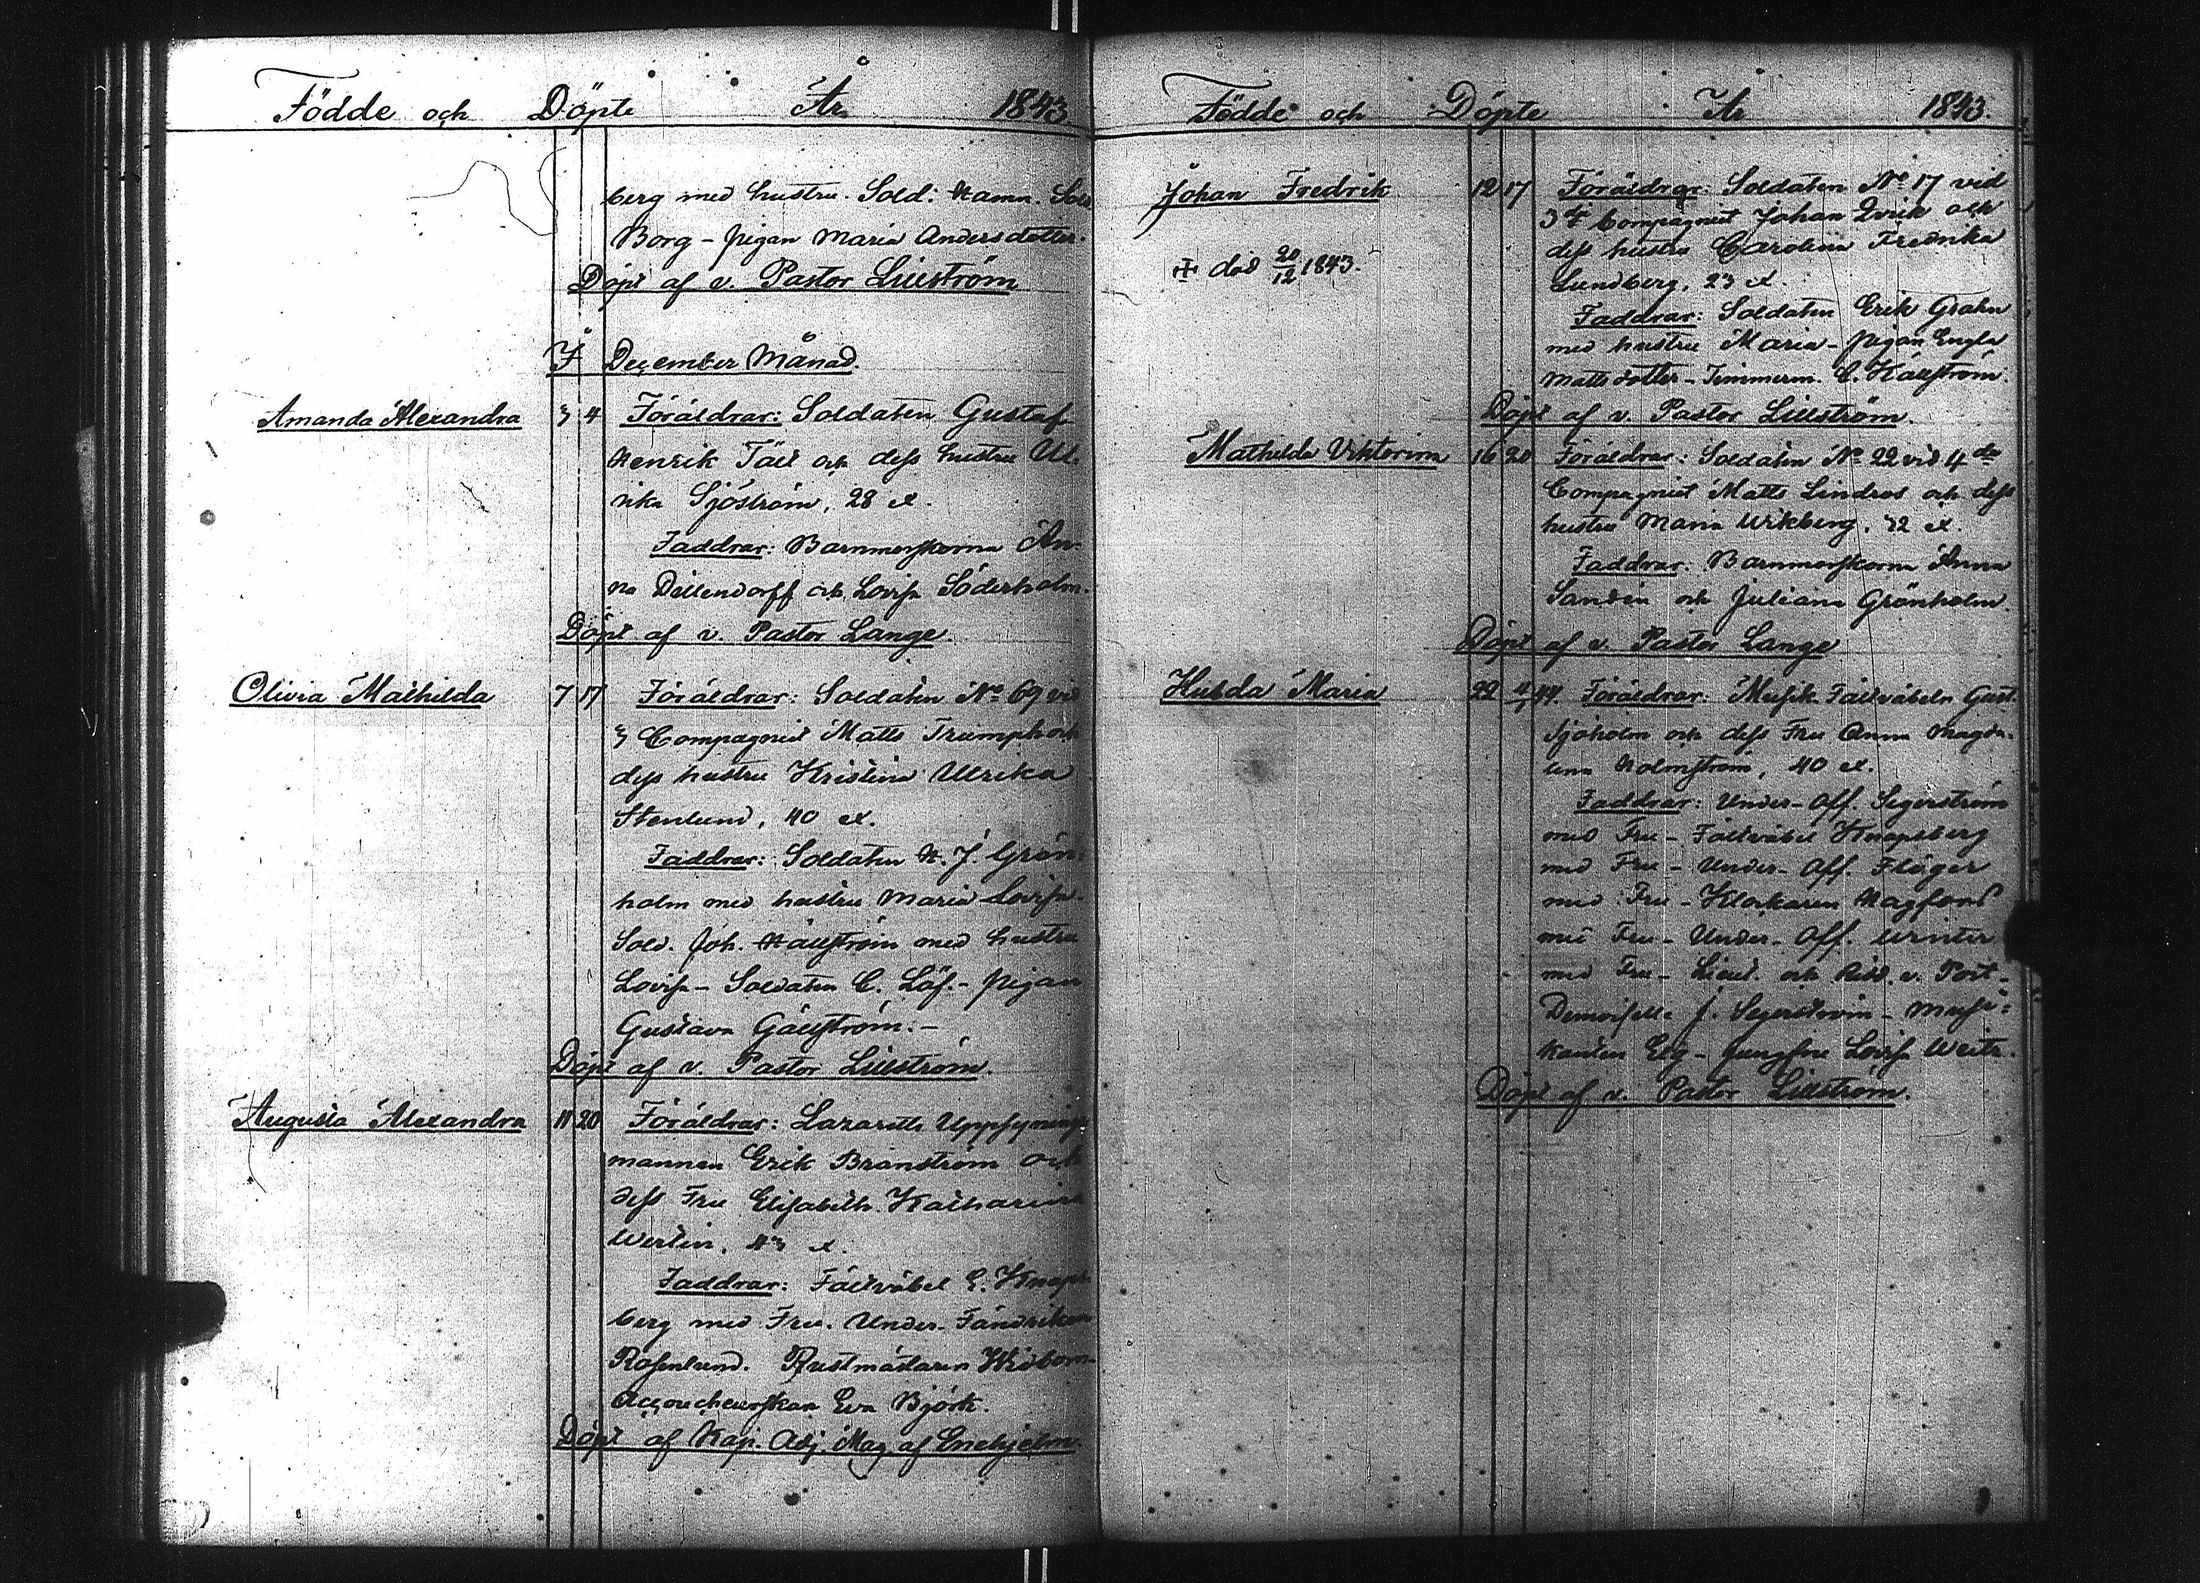 Födde och Döpte År 1843
berg med hustru. Sold. Hamn. Sold
Borg - pigan Maria Andersdotter.
Döpt af v. Pastor Lillström
I December Månad.
Amanda Alexandra 3 4 Föräldrar: Soldaten Gustaf
Henrik Täll och dess hustru Ul-
rika Sjöström, 28 år.
Faddrar: Barnmorskorna An-
na Dellendorff och Lovisa Söderholm.
Döpt af v. Pastor Lange.
Olivia Mathilda 7 17 Föräldrar: Soldaten No 69 vid
3 Compagniet Matts Triumph och
dess hustru Kristina Ulrika
Stenlund, 40 år.
Faddrar: Soldaten H. J. Grön-
holm med hustru Maria Lovisa.
Sold. Joh. Hällström med hustru
Lovisa - Soldaten C. Löf. - pigan
Gustava Gällström. -
Döpt af v. Pastor Lillström
Augusta Alexandra 11 20 Föräldrar: Lazaretts Uppsynings
mannen Erik Brånström och
dess Fru Elisabeth Katharina
Werlin, 43 år.
Faddrar: Fältväbel E. Knaps-
berg med Fru. Under-Fändriken
Rosenlund. Rustmästaren Widbom-
Accoucheurskan Eva Björk.
Döpt af Kap. Adj. Mag. af Enehjelm.
Födde och Döpte År 1843.
Johan Fredrik 12 17 Föräldrar: Soldaten No 17 vid
3dje Compagniet Johan Qvick och
dess hustru Carolina Fredrika
Lundberg, 23 år.
död 20/12 1843.
Faddrar: Soldaten Erik Grahn
med hustru Maria - pigan Engla
Mattsdotter - Timmerm. C. Hällström.
Döpt af v. Pastor Lillström.
Mathilda Viktorina 16 20 Föräldrar: Soldaten No 22 vid 4de
Compagniet Matts Lindros och dess
hustru Maria Wikberg, 32 år.
Faddrar: Barnmorskorna Anna
Sandin och Juliana Grönholm.
Döpt af v. Pastor Lange
Hulda Maria 22 4/1 44. Föräldrar: Musik Fältväbeln Gust.
Sjöholm och dess Fru Anna Magda-
lena Holmström, 40 år.
Faddrar: Under-Off. Segerström
med Fru - Fältväbel Knapsberg
med Fru - Under-Off. Flöger
med Fru - Klockaren Hagfors
med Fru - Under-Off. Winter
med Fru - Lieut. och Ridd. v. Post-
Demoiselle J. Segerström - Musi-
kanten Elg - Jungfru Lovisa Weitz.
Döpt af v. Pastor Lillström.